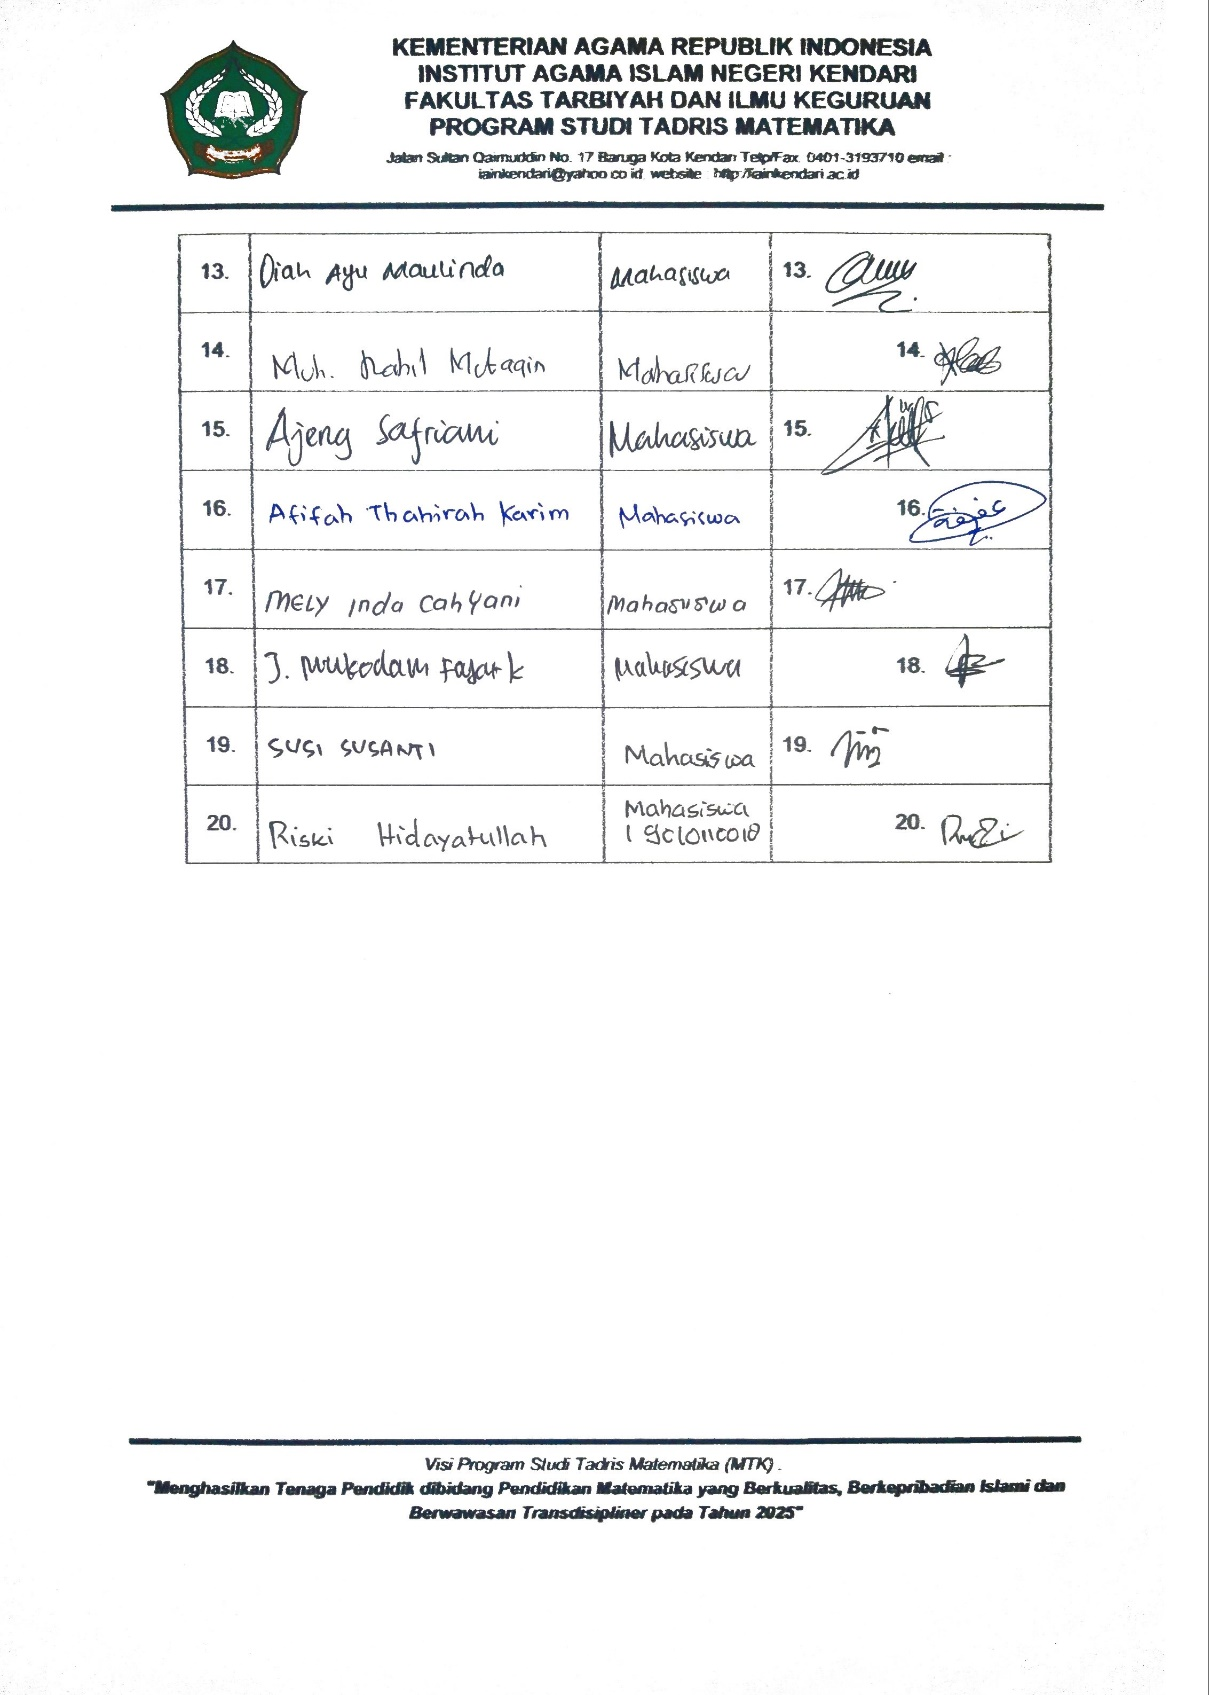 KEMENTERIAN AGAMA REPUBLIK INDONESIA
INSTITUT AGAMA ISLAM NEGERI KENDARI
FAKULTAS TARBIYAH DAN ILMU KEGURUAN
PROGRAM STUDI TADRIS MATEMATIKA
Jalan Sultan Qaimuddin No. 17 Baruga Kota Kendari Telp/Fax. 0401-3193710 email :
iainkendari@yahoo.co.id website : http://iainkendari.ac.id
13. Diah Ayu Maulinda Mahasiswa 13.
14. Muh. Nabil Mutaqin Mahasiswa 14.
15. Ajeng Safriani Mahasiswa 15.
16. Afifah Thahirah Karim Mahasiswa 16.
17. Mely Inda Cahyani Mahasiswa 17.
18. J. Mukodam Fajar k Mahasiswa 18.
19. SUSI SUSANTI Mahasiswa 19.
20. Riski Hidayatullah Mahasiswa 20.
Visi Program Studi Tadris Matematika (MTK) .
"Menghasilkan Tenaga Pendidik dibidang Pendidikan Matematika yang Berkualitas, Berkepribadian Islami dan
Berwawasan Transdisipliner pada Tahun 2025"